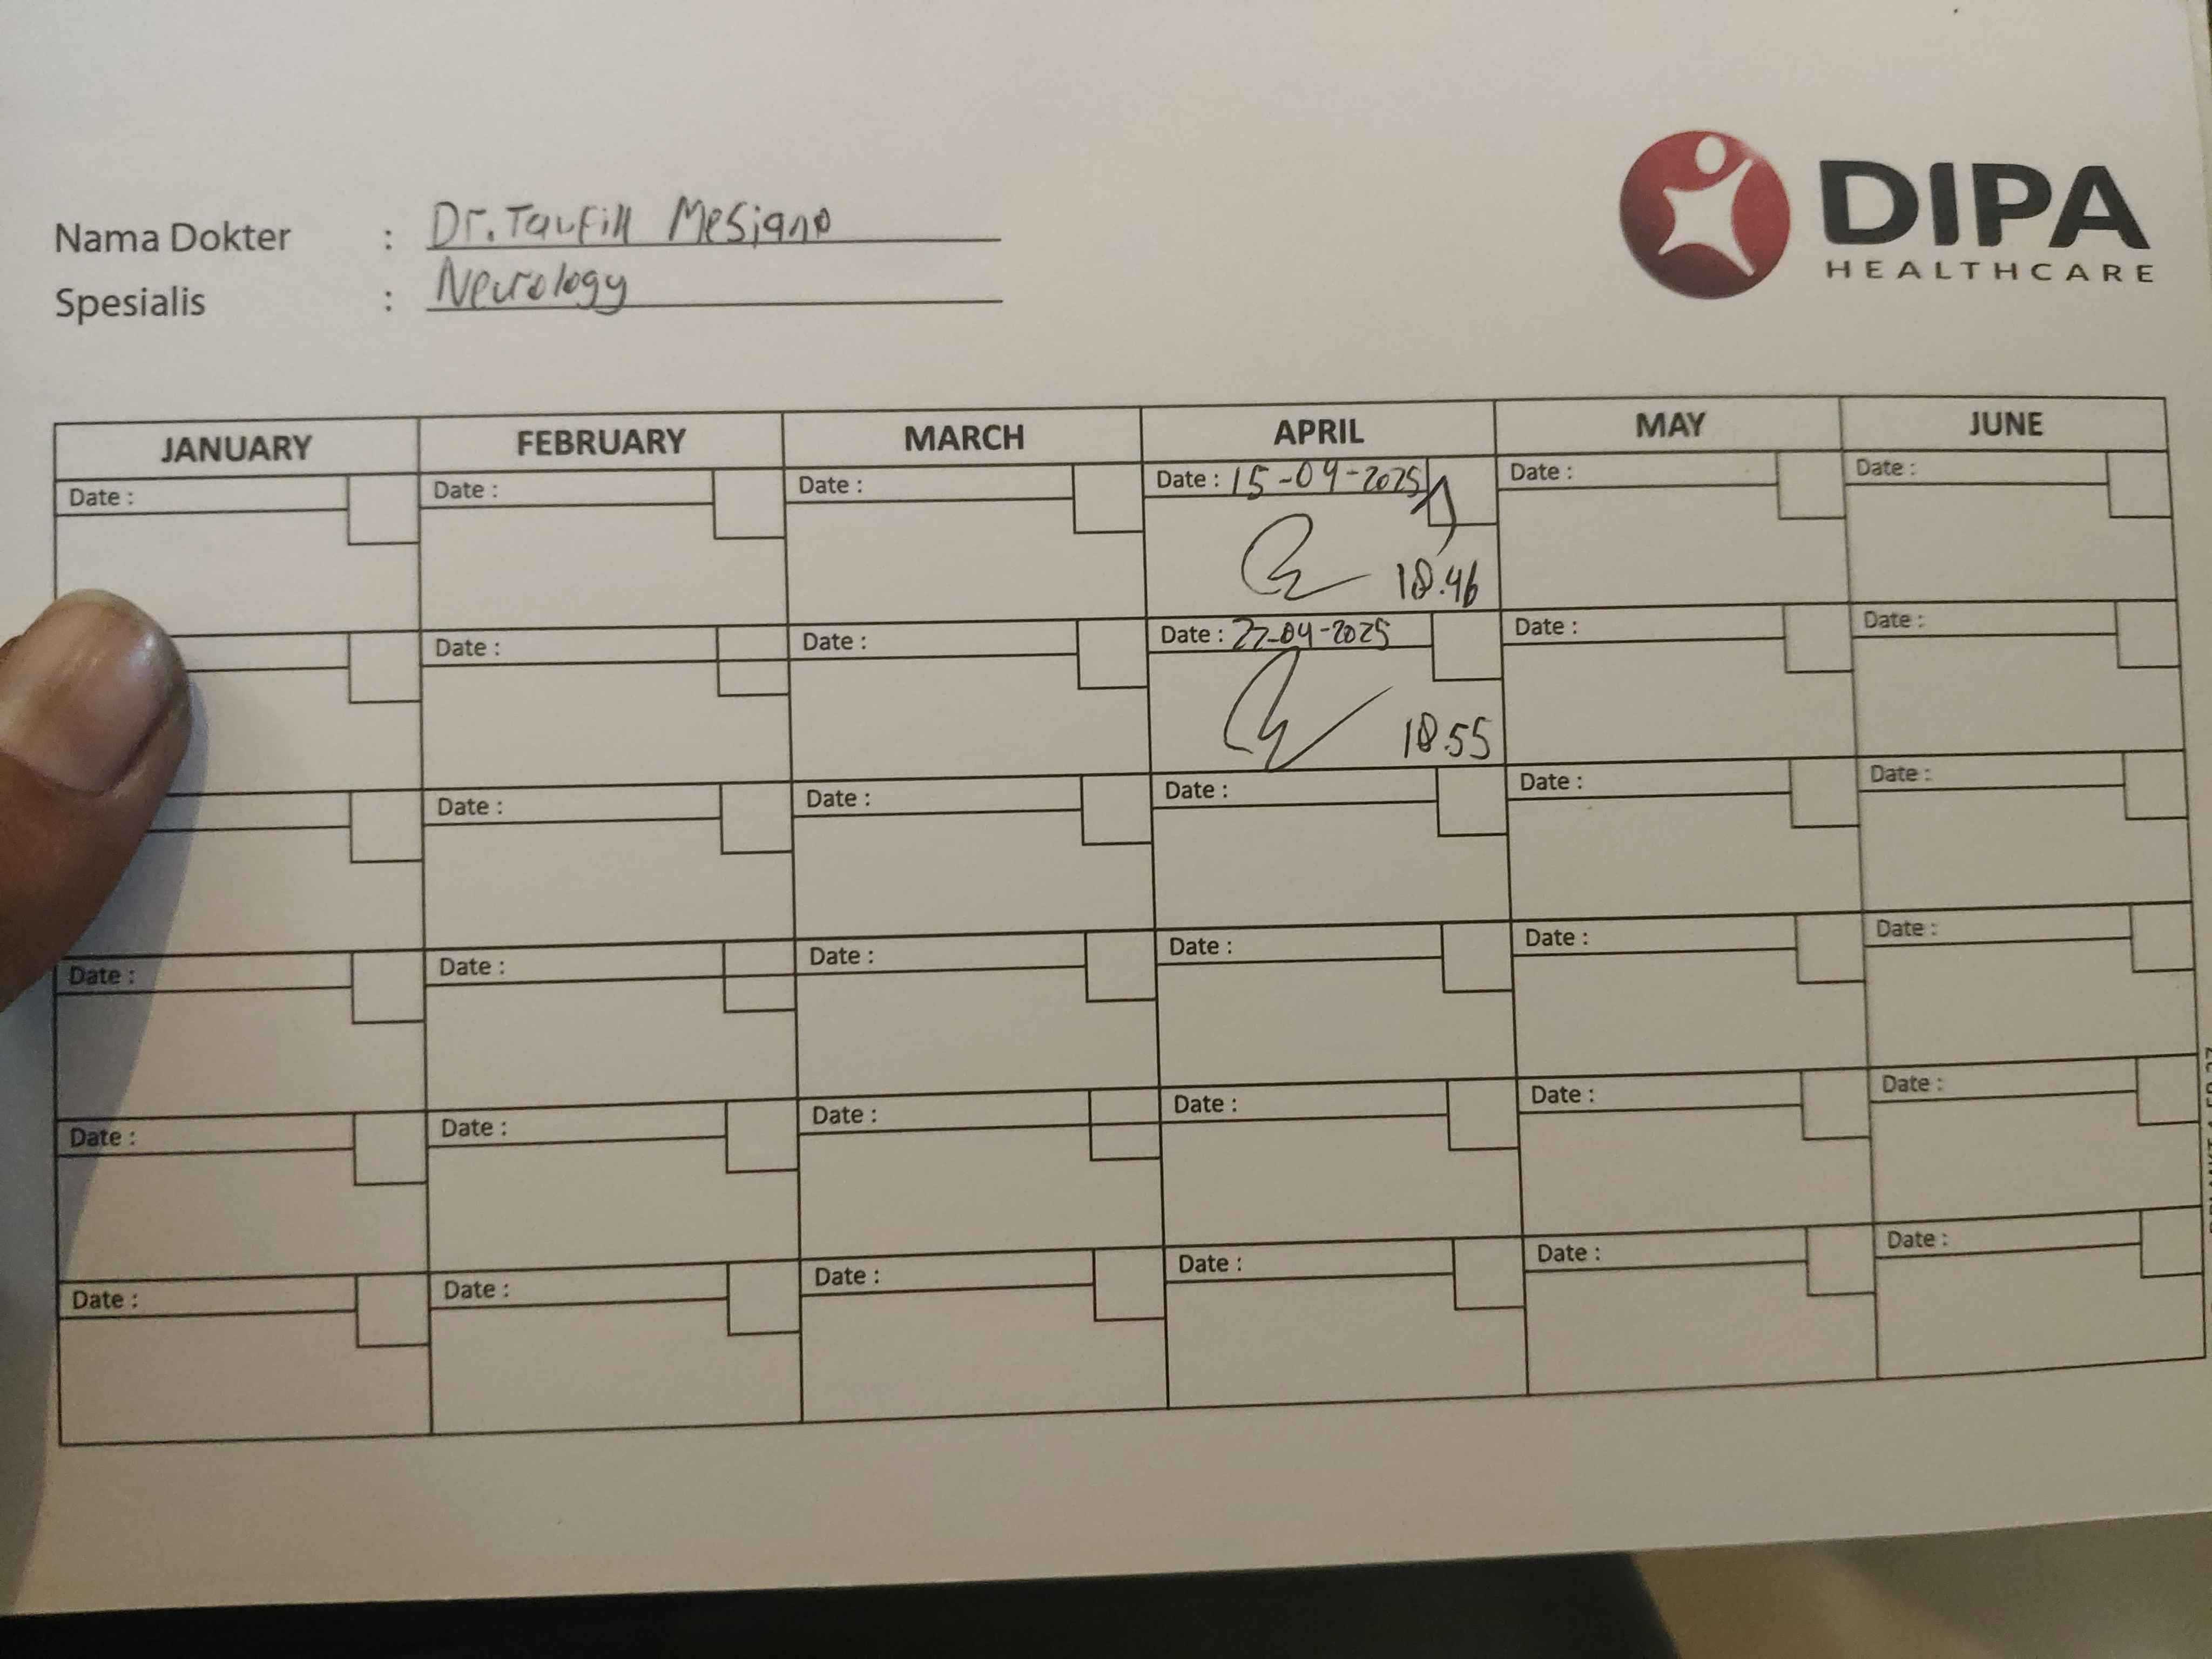 DIPA
HEALTHCARE
Nama Dokter : Dr. Taufik Mesiano
Spesialis : Neurology
JANUARY FEBRUARY MARCH APRIL MAY JUNE
Date : Date : Date : Date : 15-04-2025 Date : Date :
18.46
Date : Date : Date : 22-04-2025 Date : Date :
18.55
Date : Date : Date : Date : Date :
Date : Date : Date : Date : Date : Date :
Date : Date : Date : Date : Date : Date :
Date : Date : Date : Date : Date : Date :